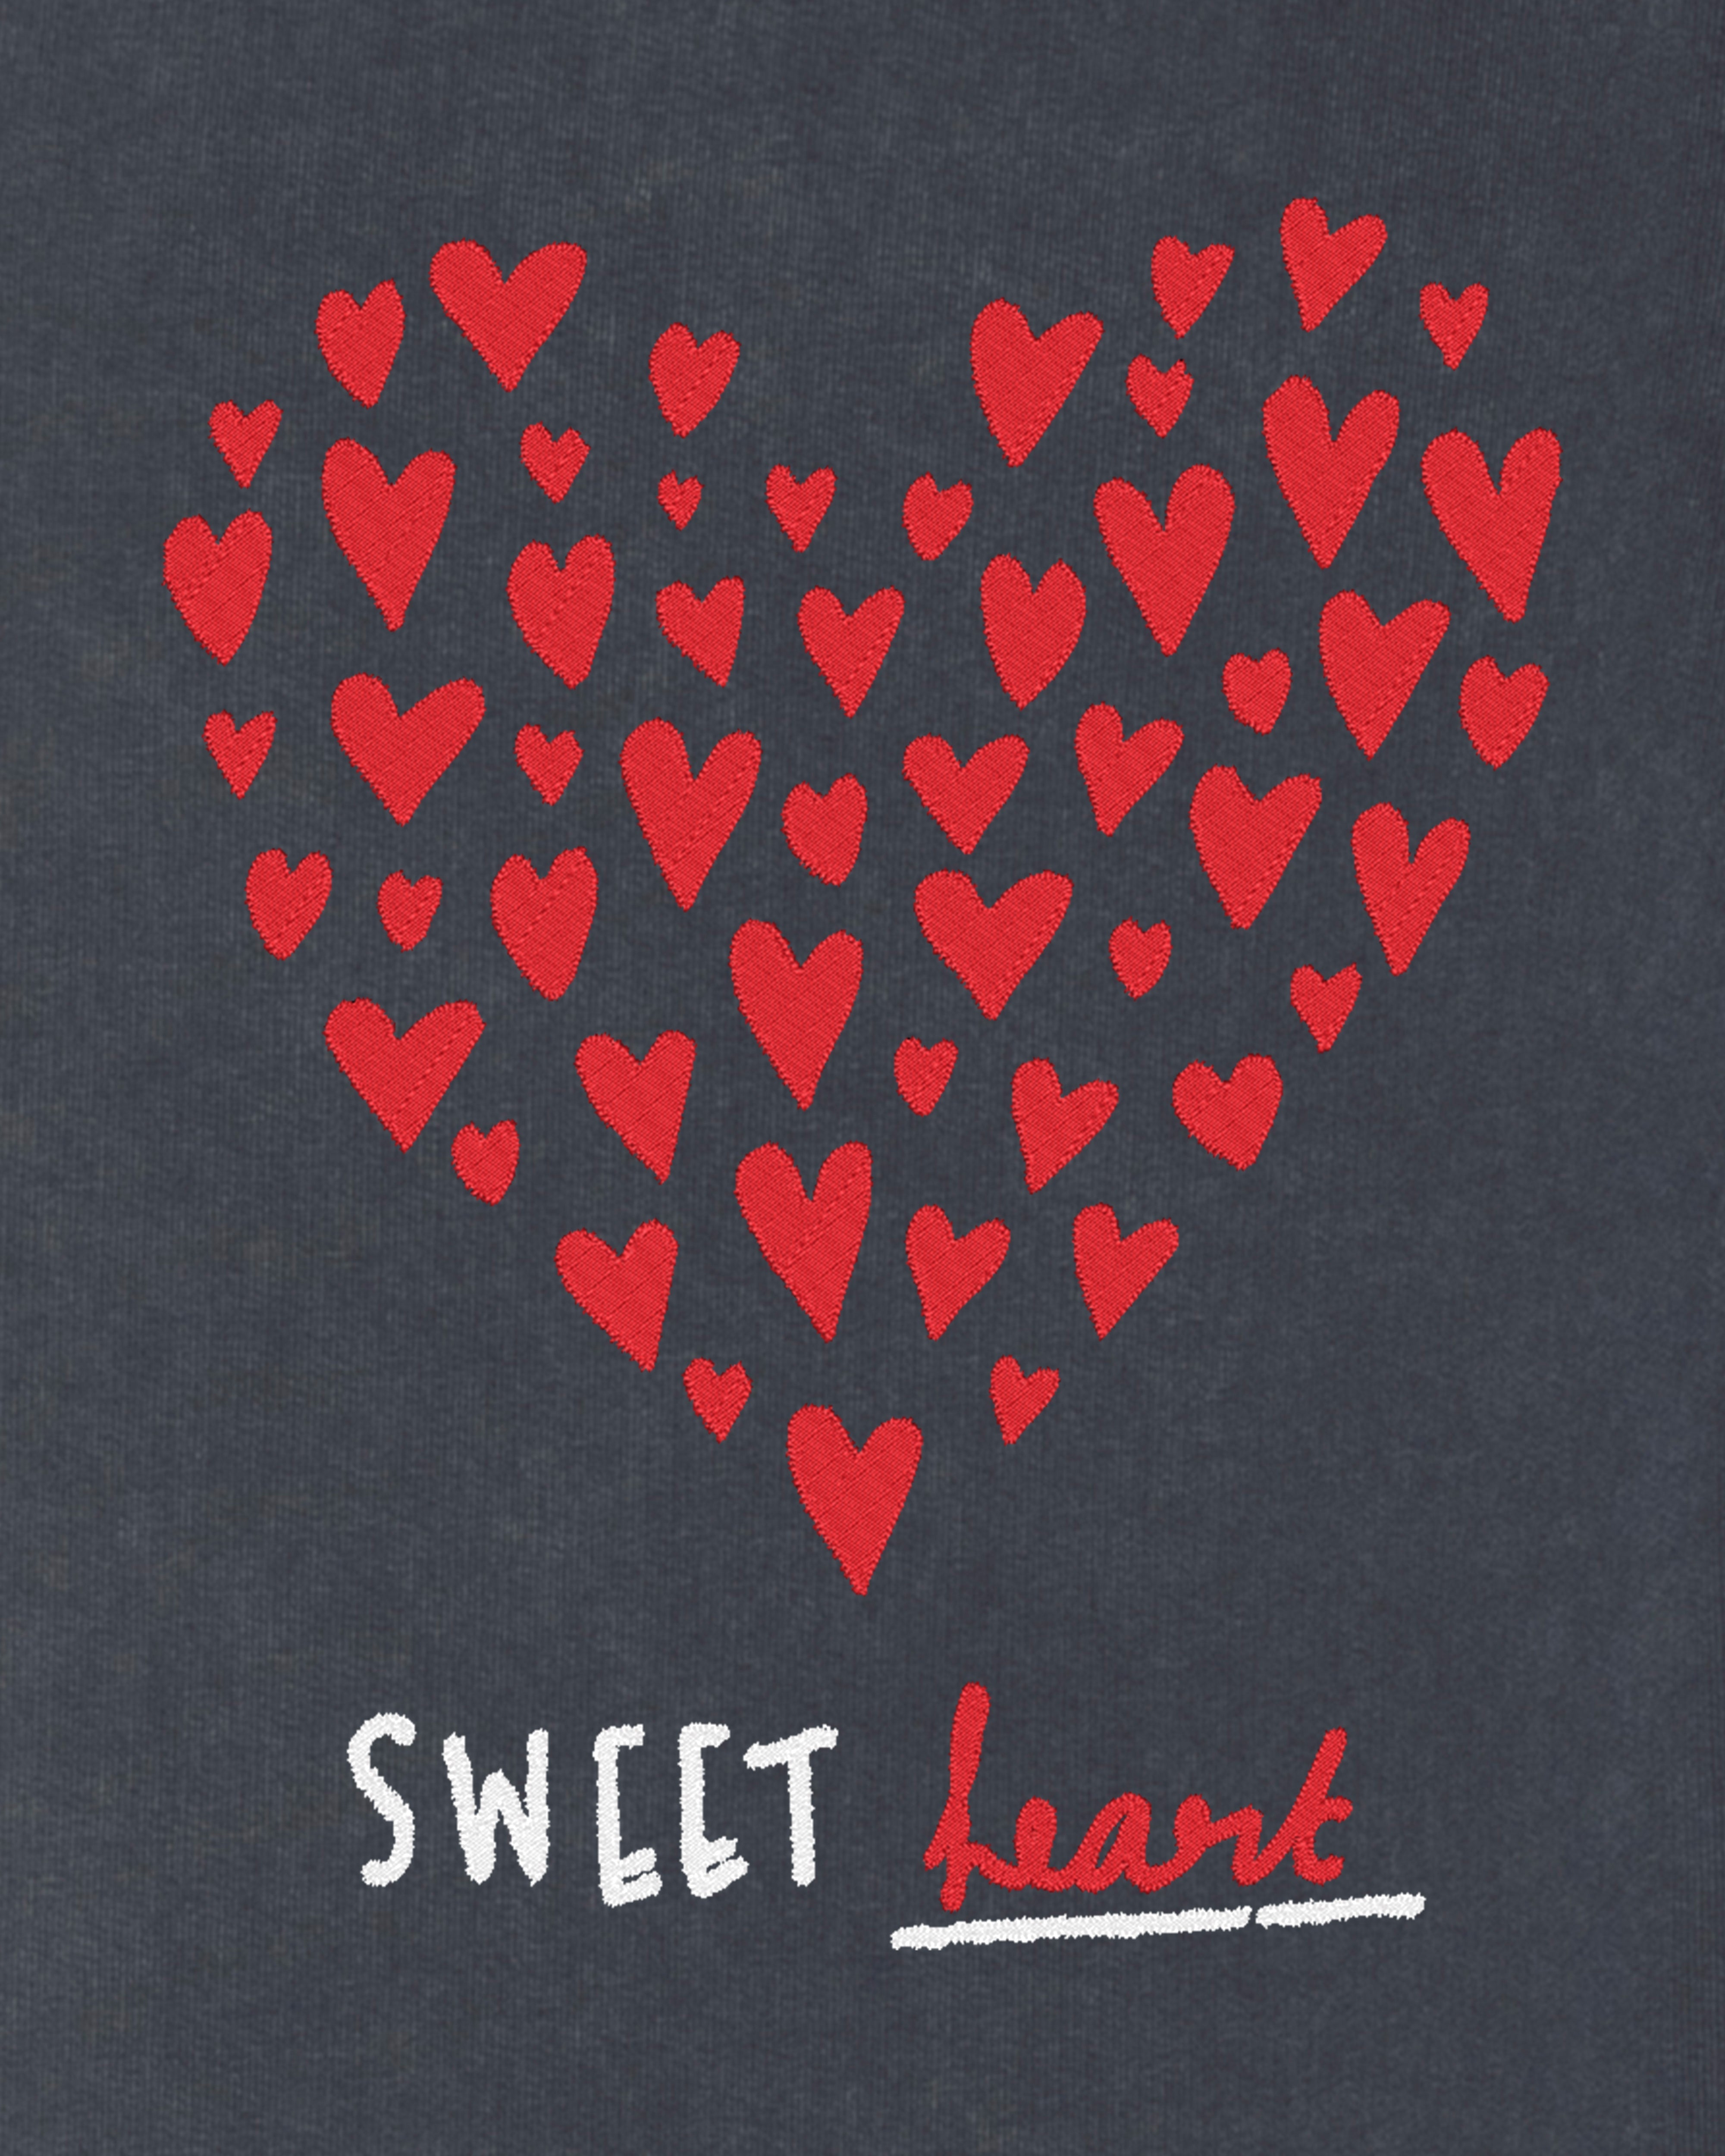 SWEET heart